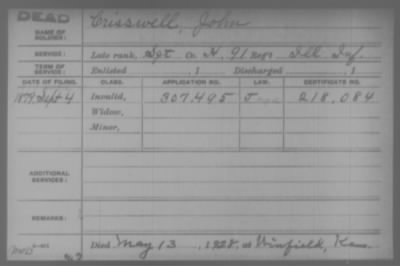 DEAD
NAME OF SOLDIER: Crisswell, John
SERVICE: Late rank, Sgt Co. H, 91 Reg't Ill. Inf.
TERM OF SERVICE: Enlisted , 1 Discharged , 1
DATE OF FILING. CLASS. APPLICATION NO. LAW. CERTIFICATE NO.
1879, Sept 4 Invalid, 307,495 218,084
Widow,
Minor,
ADDITIONAL SERVICES:
REMARKS:
Died May 13, 1928, at Winfield, Kan.